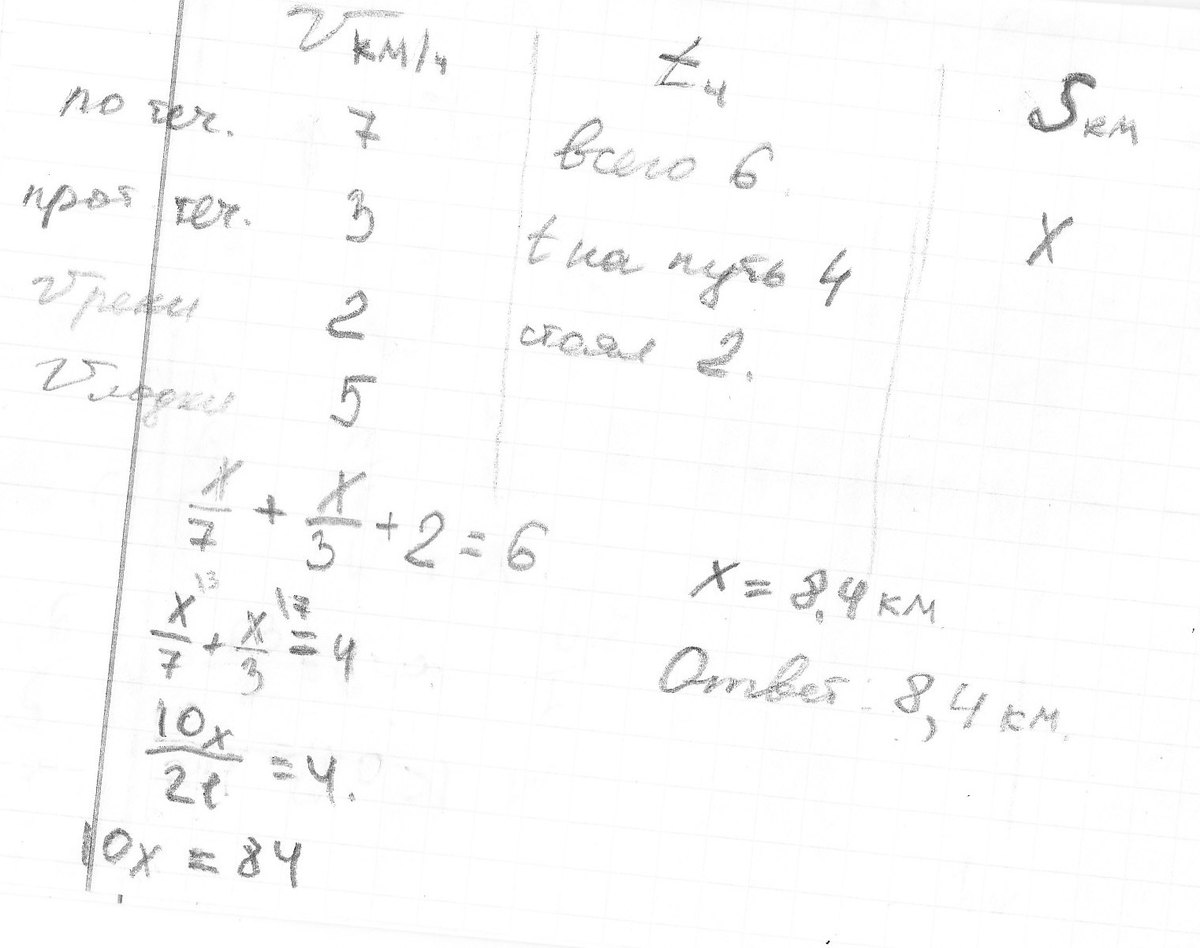 V км/ч tч Sкм
по теч. 7 всего 6.
прот теч. 3 t на путь 4 X
Vреки 2 стоял 2.
Vлодки 5
x/7 + x/3 + 2 = 6
x/7 \3 + x/3 \7 = 4
10x/21 = 4.
10x = 84
x = 8,4 км
Ответ: 8,4 км.